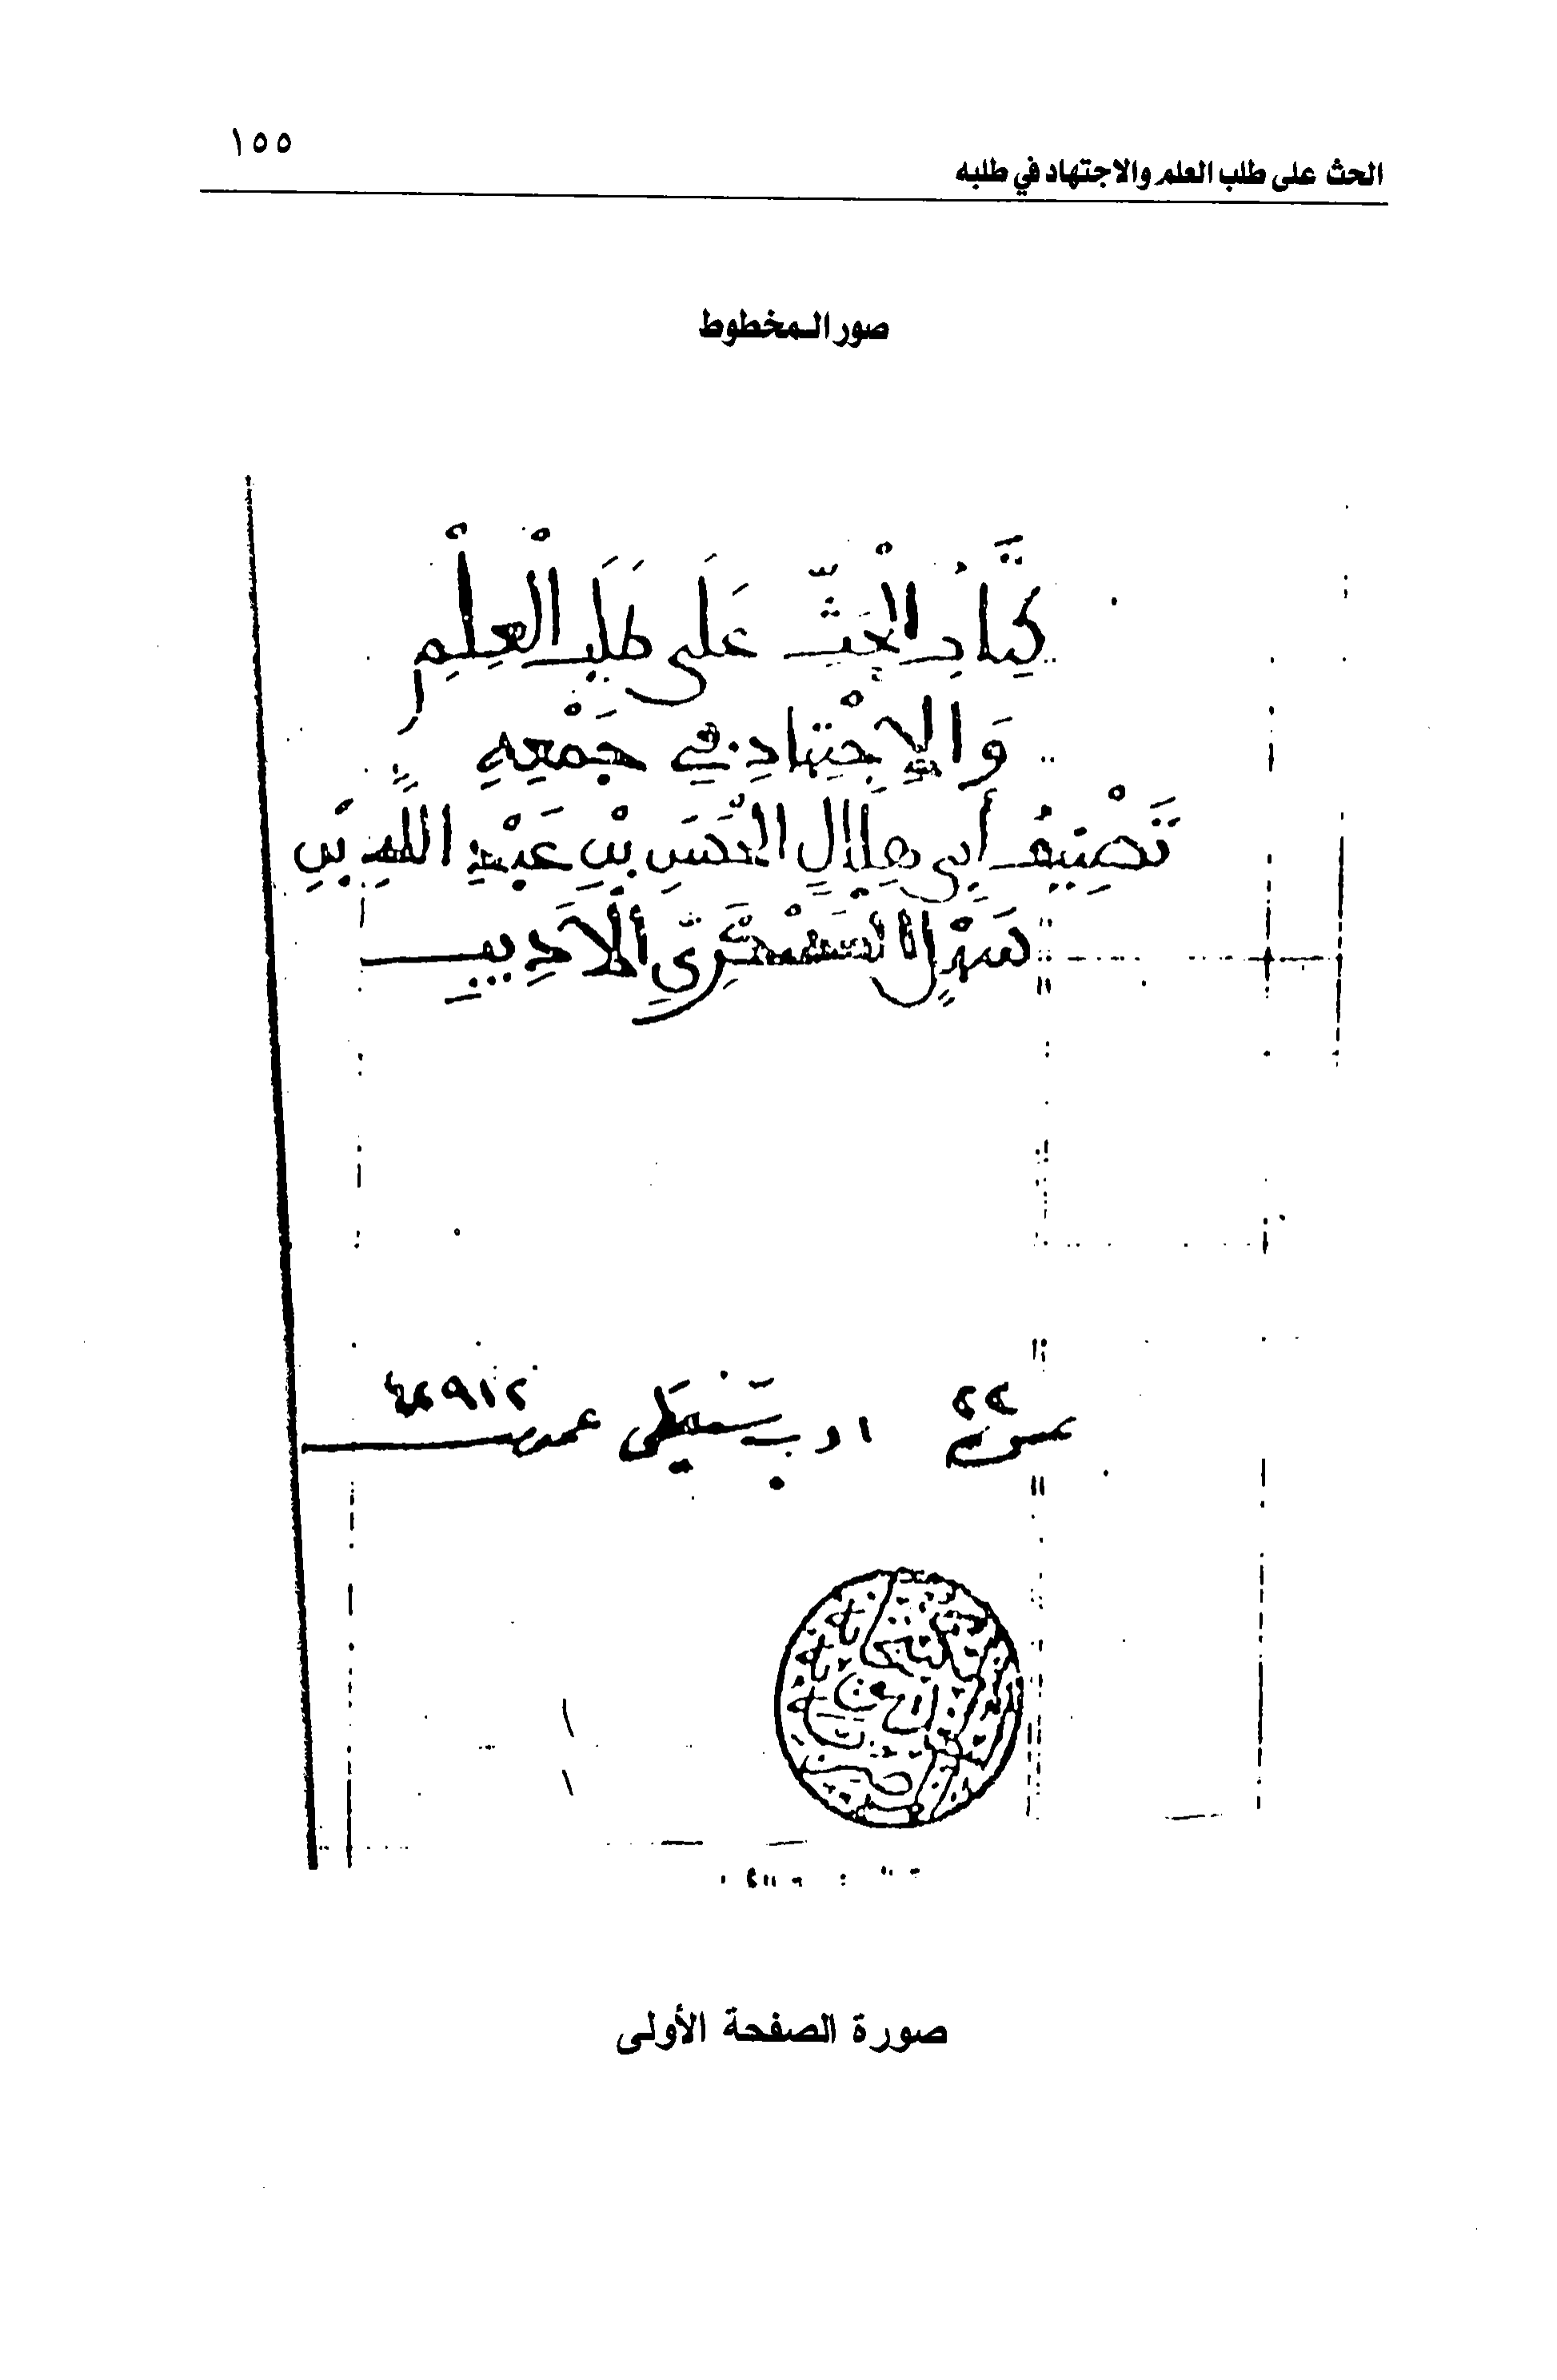 ١٥٥
الحث على طلب العلم والاجتهاد في طلبه
صور المخطوط
كِتَابُ الْحَثِّ عَلَى طَلَبِ الْعِلْمِ
وَالاِجْتِهَادِ في جَمْعِهِ
تَصْنِيفُ أَبِي هِلَالٍ الْحَسَنِ بْنِ عَبْدِ اللَّهِ بْنِ
سَهْلٍ الْعَسْكَرِيِّ الْأَدِيبِ
٤٢٩١٢
٢٢
ادب شنقيطي
صورة الصفحة الأولى